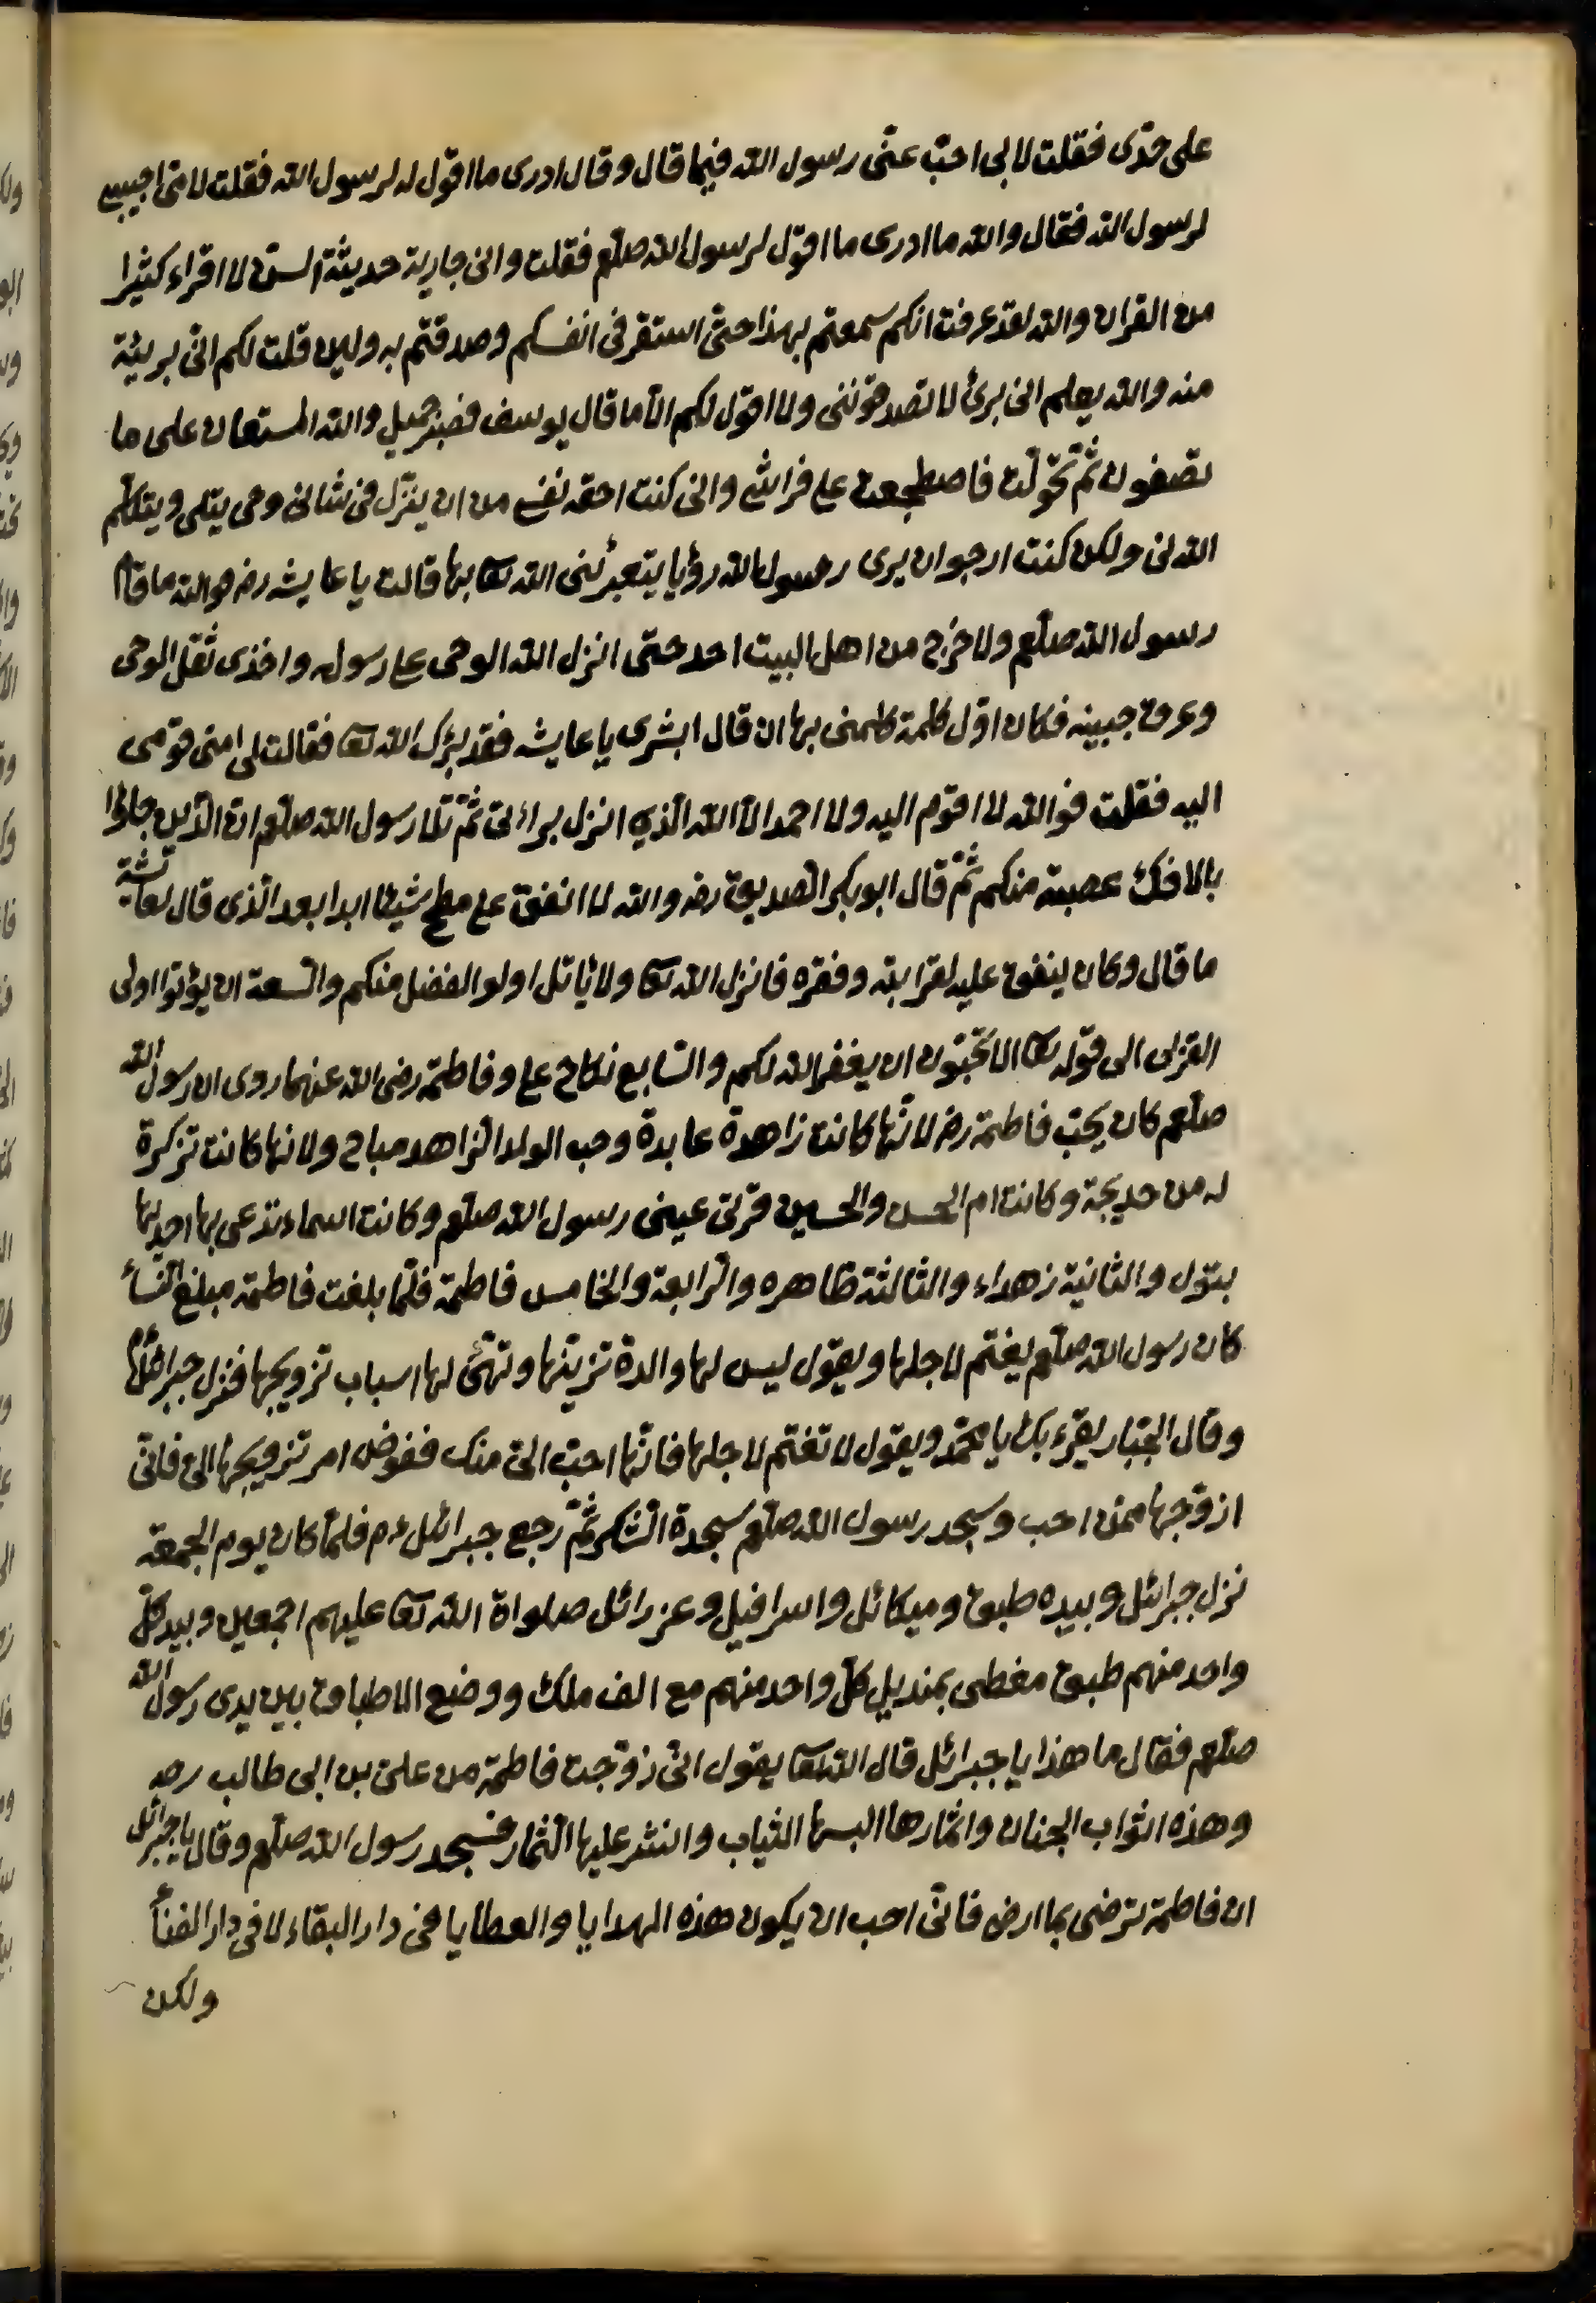 على خدّى فقلت لابى احبّ عنّى رسول الله فيما قال وقال ادرى ما اقول له لرسول الله فقلت لامّى اجيبى
لرسول الله فقال والله ما ادرى ما اقول لرسول الله صلّعم فقلت وانى جارية حديثة السنّ لا اقراء كثيرا
من القران والله لقد عرفت انكم سمعتم بهذا حتّى استقر فى انفسكم وصدقتم به ولين قلت لكم انّى بريئة
منه والله يعلم انى برئ لا تصدقوننى ولا اقول لكم الّا ما قال يوسف فصبر جميل والله المستعان على ما
تصفون ثمّ تحوّلت فاضطجعت على فراشى وانى كنت احقه نفسى من ان ينزّل فى شانى وحى يتلى ويتكلّم
الله لى ولكن كنت ارجو ان يرى رسول الله رؤيا يتعبرئنى الله تعا بها قالت يا عايشه رضـ فوالله ما قام
رسول الله صلّعم ولا خرج من اهل البيت احد حتى انزل الله الوحى على رسوله واخذى ثقل الوحى
وعرق جبينه فكان اوّل كلمة كلمنى بها ان قال ابشرى يا عايشه فقد بَرّك الله تعا فقالت لى امى قومى
اليه فقلت فوالله لا اقوم اليه ولا احمد الّا الله الّذى انزل برائتى ثمّ تلا رسول الله صلّعم ان الّذين جاؤا
بالافك عصبة منكم ثمّ قال ابو بكر الصديق رضـ والله لا انفق على مطح شيئا ابدا بعد الّذى قال لعائشة
ما قال وكان ينفق عليه لقرابته وفقره فانزل الله تعا ولا يأتل اولو الفضل منكم والسعة ان يؤتوا اولى
القربى الى قوله تعا الا تحبّون ان يغفر الله لكم والسّابع نكاح على وفاطمة رضى الله عنهما روى ان رسول الله
صلّعم كان يحبّ فاطمة رضـ لانّها كانت زاهدة عابدة وحب الولد الزاهد مباح ولانها كانت تزكرة
له من خديجة وكانت ام الحسن والحسين قرتى عينى رسول الله صلّعم وكانت اسماء تدعى بها احديها
بتول والثانية زهراء والثالثة طاهره والرابعة والخامس فاطمة فلمّا بلغت فاطمة مبلغ النّساء
كان رسول الله صلّعم يغتم لاجلها ويقول ليس لها والدة تزينها وتهئ لها اسباب تزويجها فنزل جبرائل ءم
وقال الجبّار يقرء بك يا محمّد ويقول لا تغتم لاجلها فانّها احبّ الىّ منك ففوض امر تزويجها الىّ فانّى
ازوّجها ممن احب وسجد رسول الله صلّعم سجدة الشكر ثمّ رجع جبرائل ءم فلمّا كان يوم الجمعة
نزل جبرائل وبيده طبق وميكائل واسرافيل وعزرائل صلواة الله تعا عليهم اجمعين وبيد كلّ
واحد منهم طبق مغطى بمنديل كلّ واحد منهم مع الف ملك ووضع الاطباق بين يدى رسول الله
صلّعم فقال ما هذا يا جبرائل قال الله تعا يقول انّى زوّجت فاطمة من على بن ابى طالب رضـ
وهذه اثواب الجنان واثمارها البسها الثياب وانثر عليها الثمار فسجد رسول الله صلّعم وقال يا جبرائل
ان فاطمة ترضى بما ارضى فانّى احب ان يكون هذه الهدايا والعطايا فى دار البقاء لا فى دار الفناء
ولكن